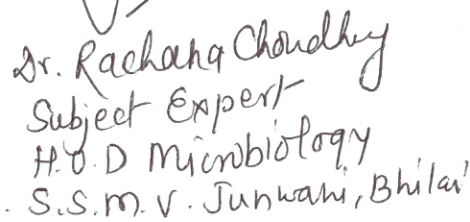 Dr. Rachana Choudhey
Subject Expert
H.O.D Microbiology
S.S.M.V. Junwani, Bhilai